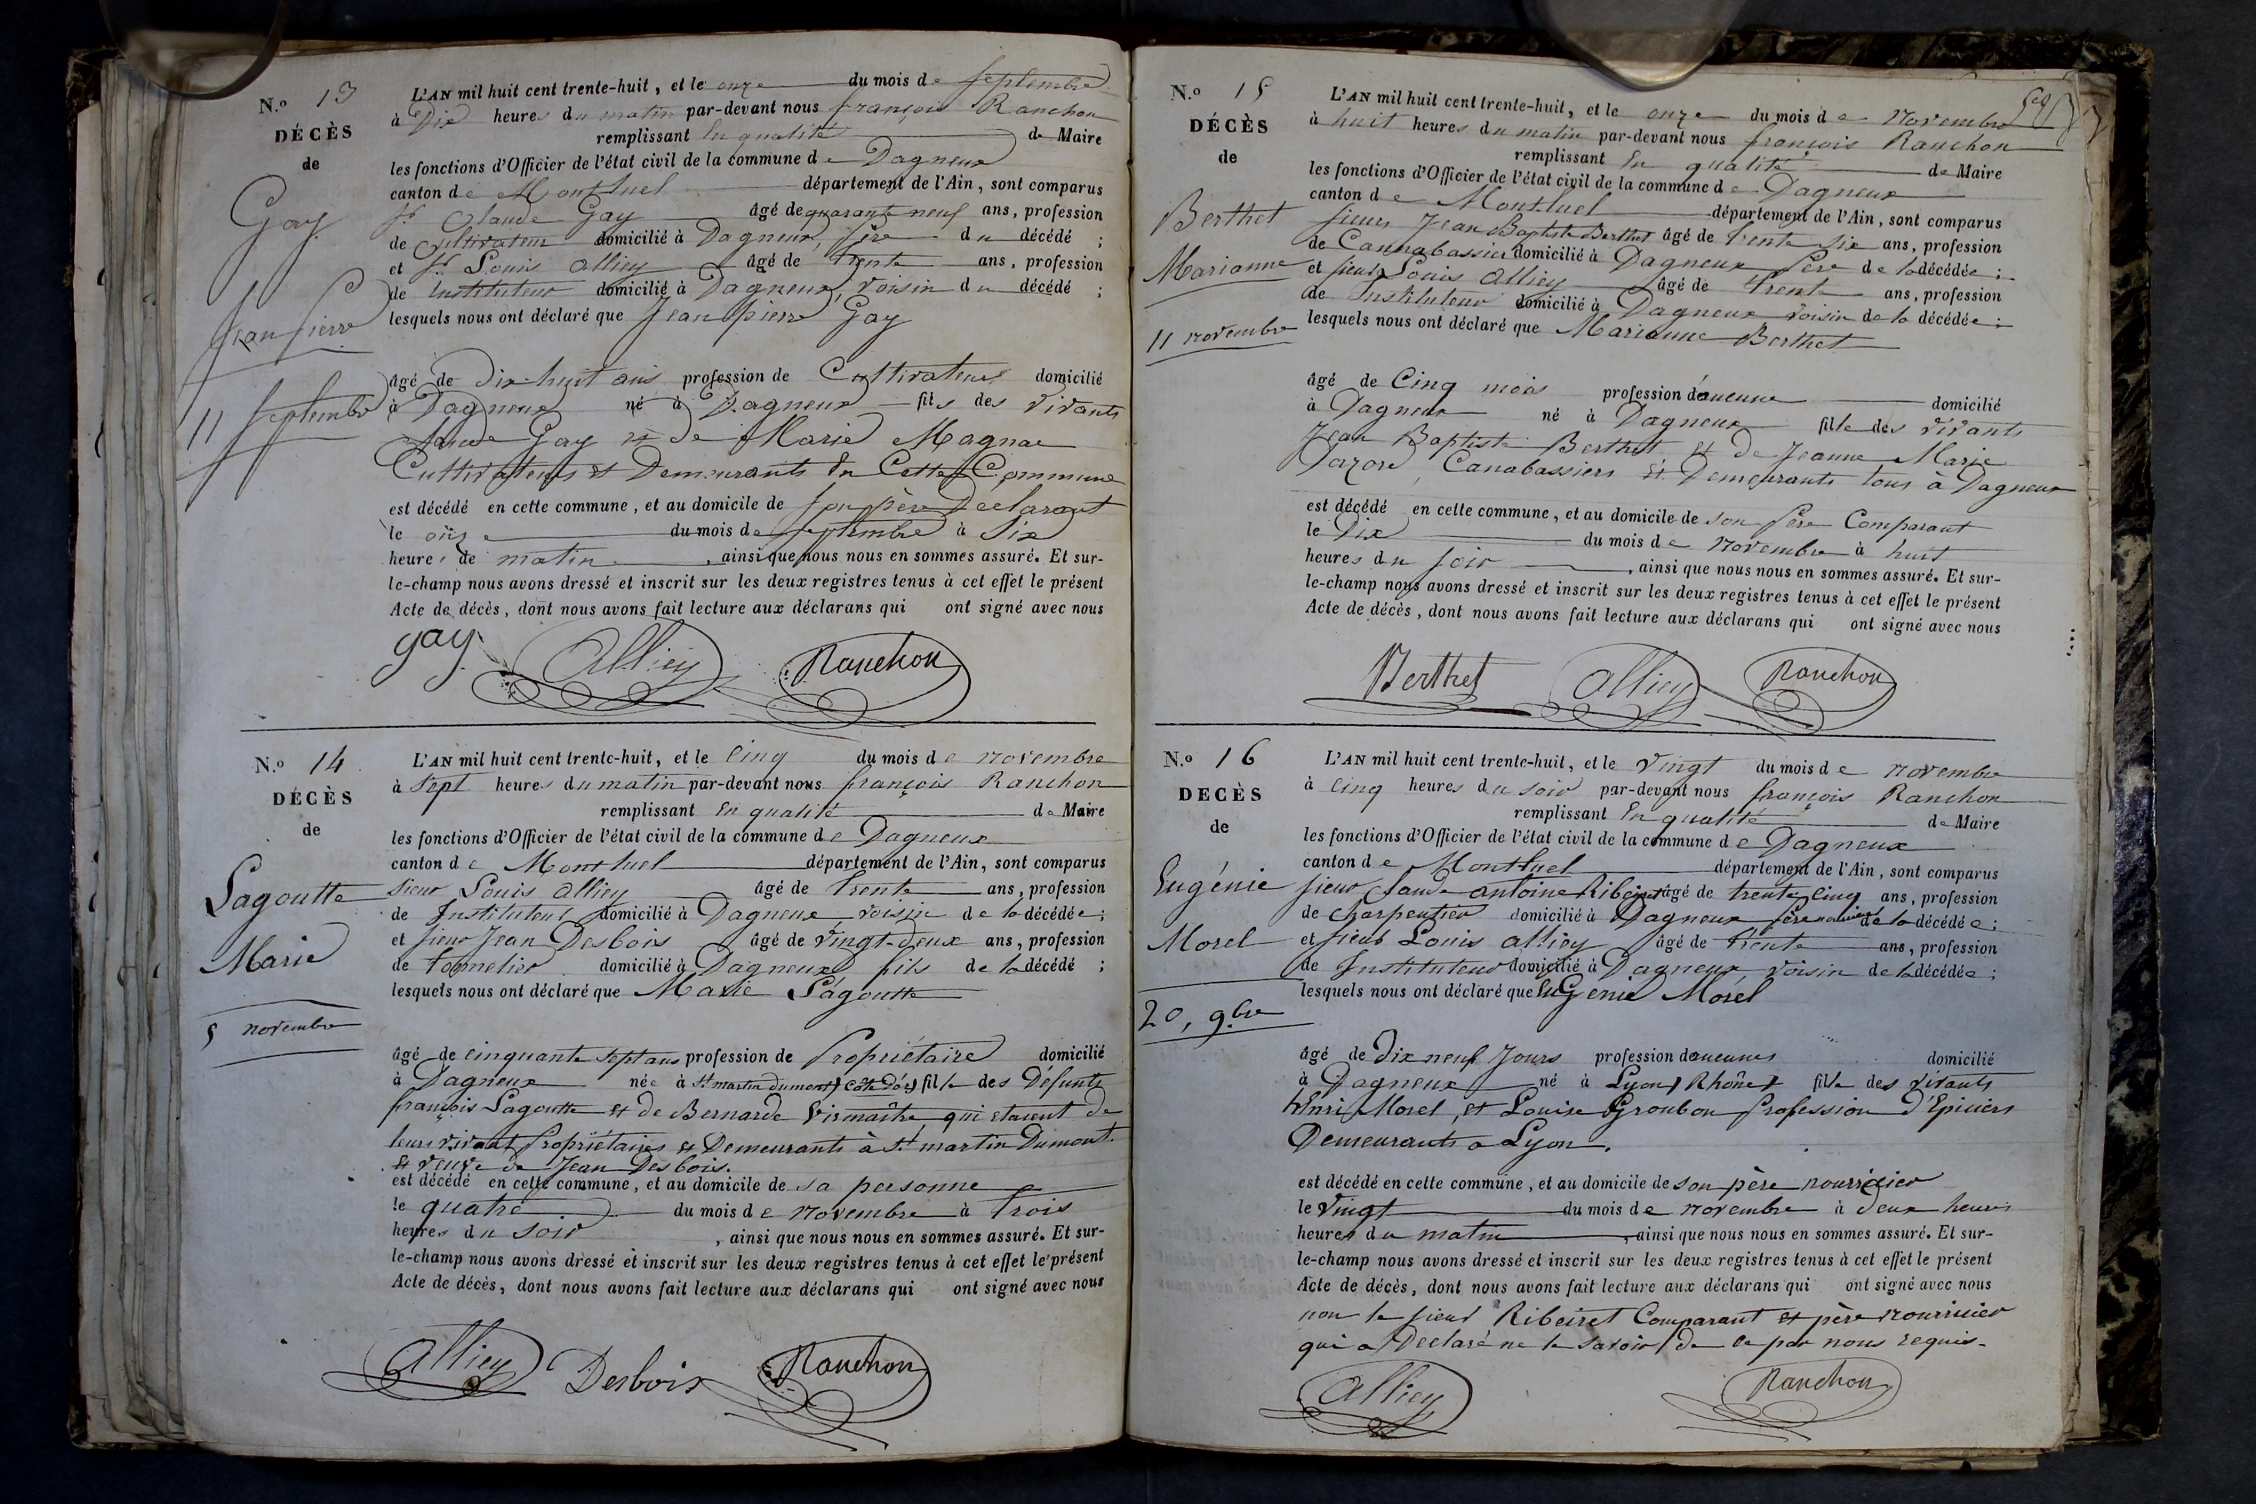 N.o 13
DÉCÈS
de
Gay
Jean Pierre
11 Septembre
L'AN mil huit cent trente-huit, et le onze du mois de Septembre
à Dix heures du matin par-devant nous françois Ranchon
remplissant En qualité de Maire
les fonctions d'Officier de l'état civil de la commune de Dagneux
canton de Montluel département de l'Ain, sont comparus
Sr Claude Gay âgé de quarante neuf ans, profession
de Cultivateur domicilié à Dagneux, père du décédé ;
et Sr Louis Alliey âgé de trente ans, profession
de Instituteur domicilié à Dagneux, voisin du décédé ;
lesquels nous ont déclaré que Jean pierre Gay
âgé de Dix-huit ans profession de Cultivateur domicilié
à Dagneux né à Dagneux fils des vivants
Claude Gay et de Marie Magnae
Cultivateurs et Demeurants En Cette Commune
est décédé en cette commune, et au domicile de son père Declarant
le onze du mois de Septembre à Six
heures de matin, ainsi que nous nous en sommes assuré. Et sur-
le-champ nous avons dressé et inscrit sur les deux registres tenus à cet effet le présent
Acte de décès, dont nous avons fait lecture aux déclarans qui ont signé avec nous
gay Alliey Ranchon
N.o 14
DÉCÈS
de
Lagoutte
Marie
5 novembre
L'AN mil huit cent trente-huit, et le Cinq du mois de novembre
à Sept heures du matin par-devant nous françois Ranchon
remplissant En qualité de Maire
les fonctions d'Officier de l'état civil de la commune de Dagneux
canton de Montluel département de l'Ain, sont comparus
Sieur Louis Alliey âgé de trente ans, profession
de Instituteur domicilié à Dagneux voisin de la décédée ;
et sieur Jean Desbois âgé de vingt-deux ans, profession
de tonnelier domicilié à Dagneux fils de la décédé ;
lesquels nous ont déclaré que Marie Lagoutte
âgé de cinquante Sept ans profession de Propriétaire domicilié
à Dagneux née à St martin dumont (Côte D'or) fille des Défunts
françois Lagoutte et de Bernarde Virmaître qui etaient de
leur vivant Propriétaires et Demeurants à St martin Dumont.
et veuve de Jean Desbois.
est décédé en cette commune, et au domicile de sa personne
le quatre du mois de novembre à trois
heures du soir, ainsi que nous nous en sommes assuré. Et sur-
le-champ nous avons dressé et inscrit sur les deux registres tenus à cet effet le présent
Acte de décès, dont nous avons fait lecture aux déclarans qui ont signé avec nous
Alliey Desbois Ranchon
N.o 15
DÉCÈS
de
Berthet
Marianne
11 novembre
L'AN mil huit cent trente-huit, et le onze du mois de novembre
à huit heures du matin par-devant nous françois Ranchon
remplissant En qualité de Maire
les fonctions d'Officier de l'état civil de la commune de Dagneux
canton de Montluel département de l'Ain, sont comparus
sieurs Jean Baptiste Berthet âgé de trente six ans, profession
de Cannabassier domicilié à Dagneux Père de la décédée ;
et sieur Louis Alliey âgé de trent ans, profession
de Instituteur domicilié à Dagneux voisin de la décédée ;
lesquels nous ont déclaré que Marianne Berthet
âgé de Cinq mois profession d'aucune domicilié
à Dagneux né à Dagneux fille des vivants
Jean Baptiste Berthet, et de Jeanne Marie
Canabassiers et Demeurants tous à Dagneux
est décédé en cette commune, et au domicile de son Père Comparant
le Dix du mois de novembre à huit
heures du soir, ainsi que nous nous en sommes assuré. Et sur-
le-champ nous avons dressé et inscrit sur les deux registres tenus à cet effet le présent
Acte de décès, dont nous avons fait lecture aux déclarans qui ont signé avec nous
Berthet Alliey Ranchon
N.o 16
DECÈS
de
Eugénie
Morel
20, 9.bre
L'AN mil huit cent trente-huit, et le vingt du mois de novembre
à Cinq heures du soir par-devant nous françois Ranchon
remplissant En qualité de Maire
les fonctions d'Officier de l'état civil de la commune de Dagneux
canton de Montluel département de l'Ain, sont comparus
sieur Claude antoine Ribeiret âgé de trente cinq ans, profession
de charpentier domicilié à Dagneux père nourricier de la décédée ;
et sieur Louis Alliey âgé de trente ans, profession
de Instituteur domicilié à Dagneux voisin de la décédée ;
lesquels nous ont déclaré que EuGenie Morel
âgé de Dix neuf Jours profession d'aucunes domicilié
à Dagneux né à Lyon (Rhône) fille des vivants
henri Morel, et Louise Groubon Profession d'Epiciers
Demeurants a Lyon.
est décédé en cette commune, et au domicile de son père nourricier
le vingt du mois de novembre à deux heures
heures du matin, ainsi que nous nous en sommes assuré. Et sur-
le-champ nous avons dressé et inscrit sur les deux registres tenus à cet effet le présent
Acte de décès, dont nous avons fait lecture aux déclarans qui ont signé avec nous
non le sieur Ribeiret Comparant et père nourricier
qui a Declaré ne le savoir de ce par nous requis.
Alliey Ranchon